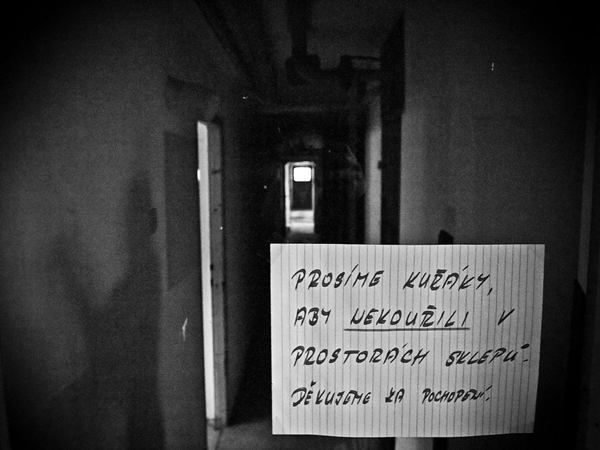 PROSÍME KUŘÁKY,
ABY NEKOUŘILI V
PROSTORÁCH SKLEPŮ.
DĚKUJEME ZA POCHOPENÍ.